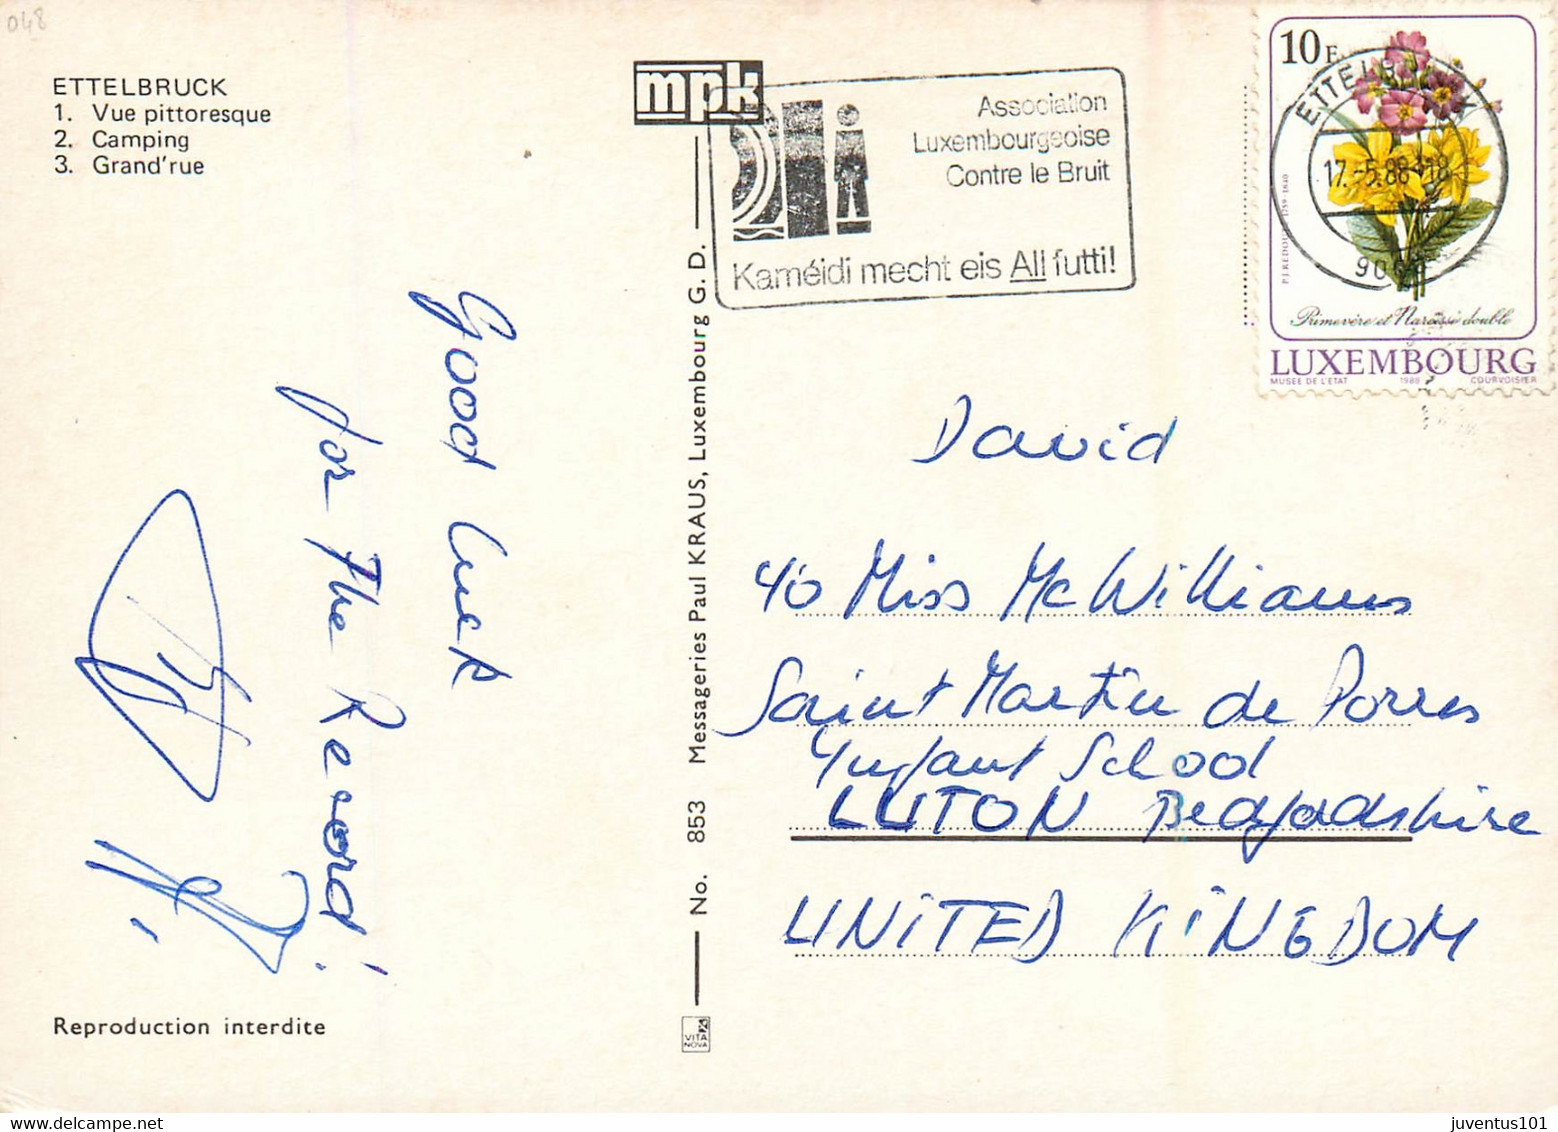 048
ETTELBRUCK
1. Vue pittoresque
2. Camping
3. Grand'rue
Good luck
for The Record!
Reproduction interdite
mpk
No. 853 Messageries Paul KRAUS, Luxembourg G. D.
VITA
NOVA
Association
Luxembourgeoise
Contre le Bruit
Kaméidi mecht eis All futti!
10 F
ETTELBRUCK
17.-5.88-18
P.J. REDOUTÉ 1759-1840
Primevère et Narcisse double
LUXEMBOURG
MUSEE DE L'ETAT 1988 COURVOISIER
David
40 Miss McWilliams
Saint Martin de Porres
Infant School
LUTON Bedfordshire
UNITED KINGDOM
juventus101